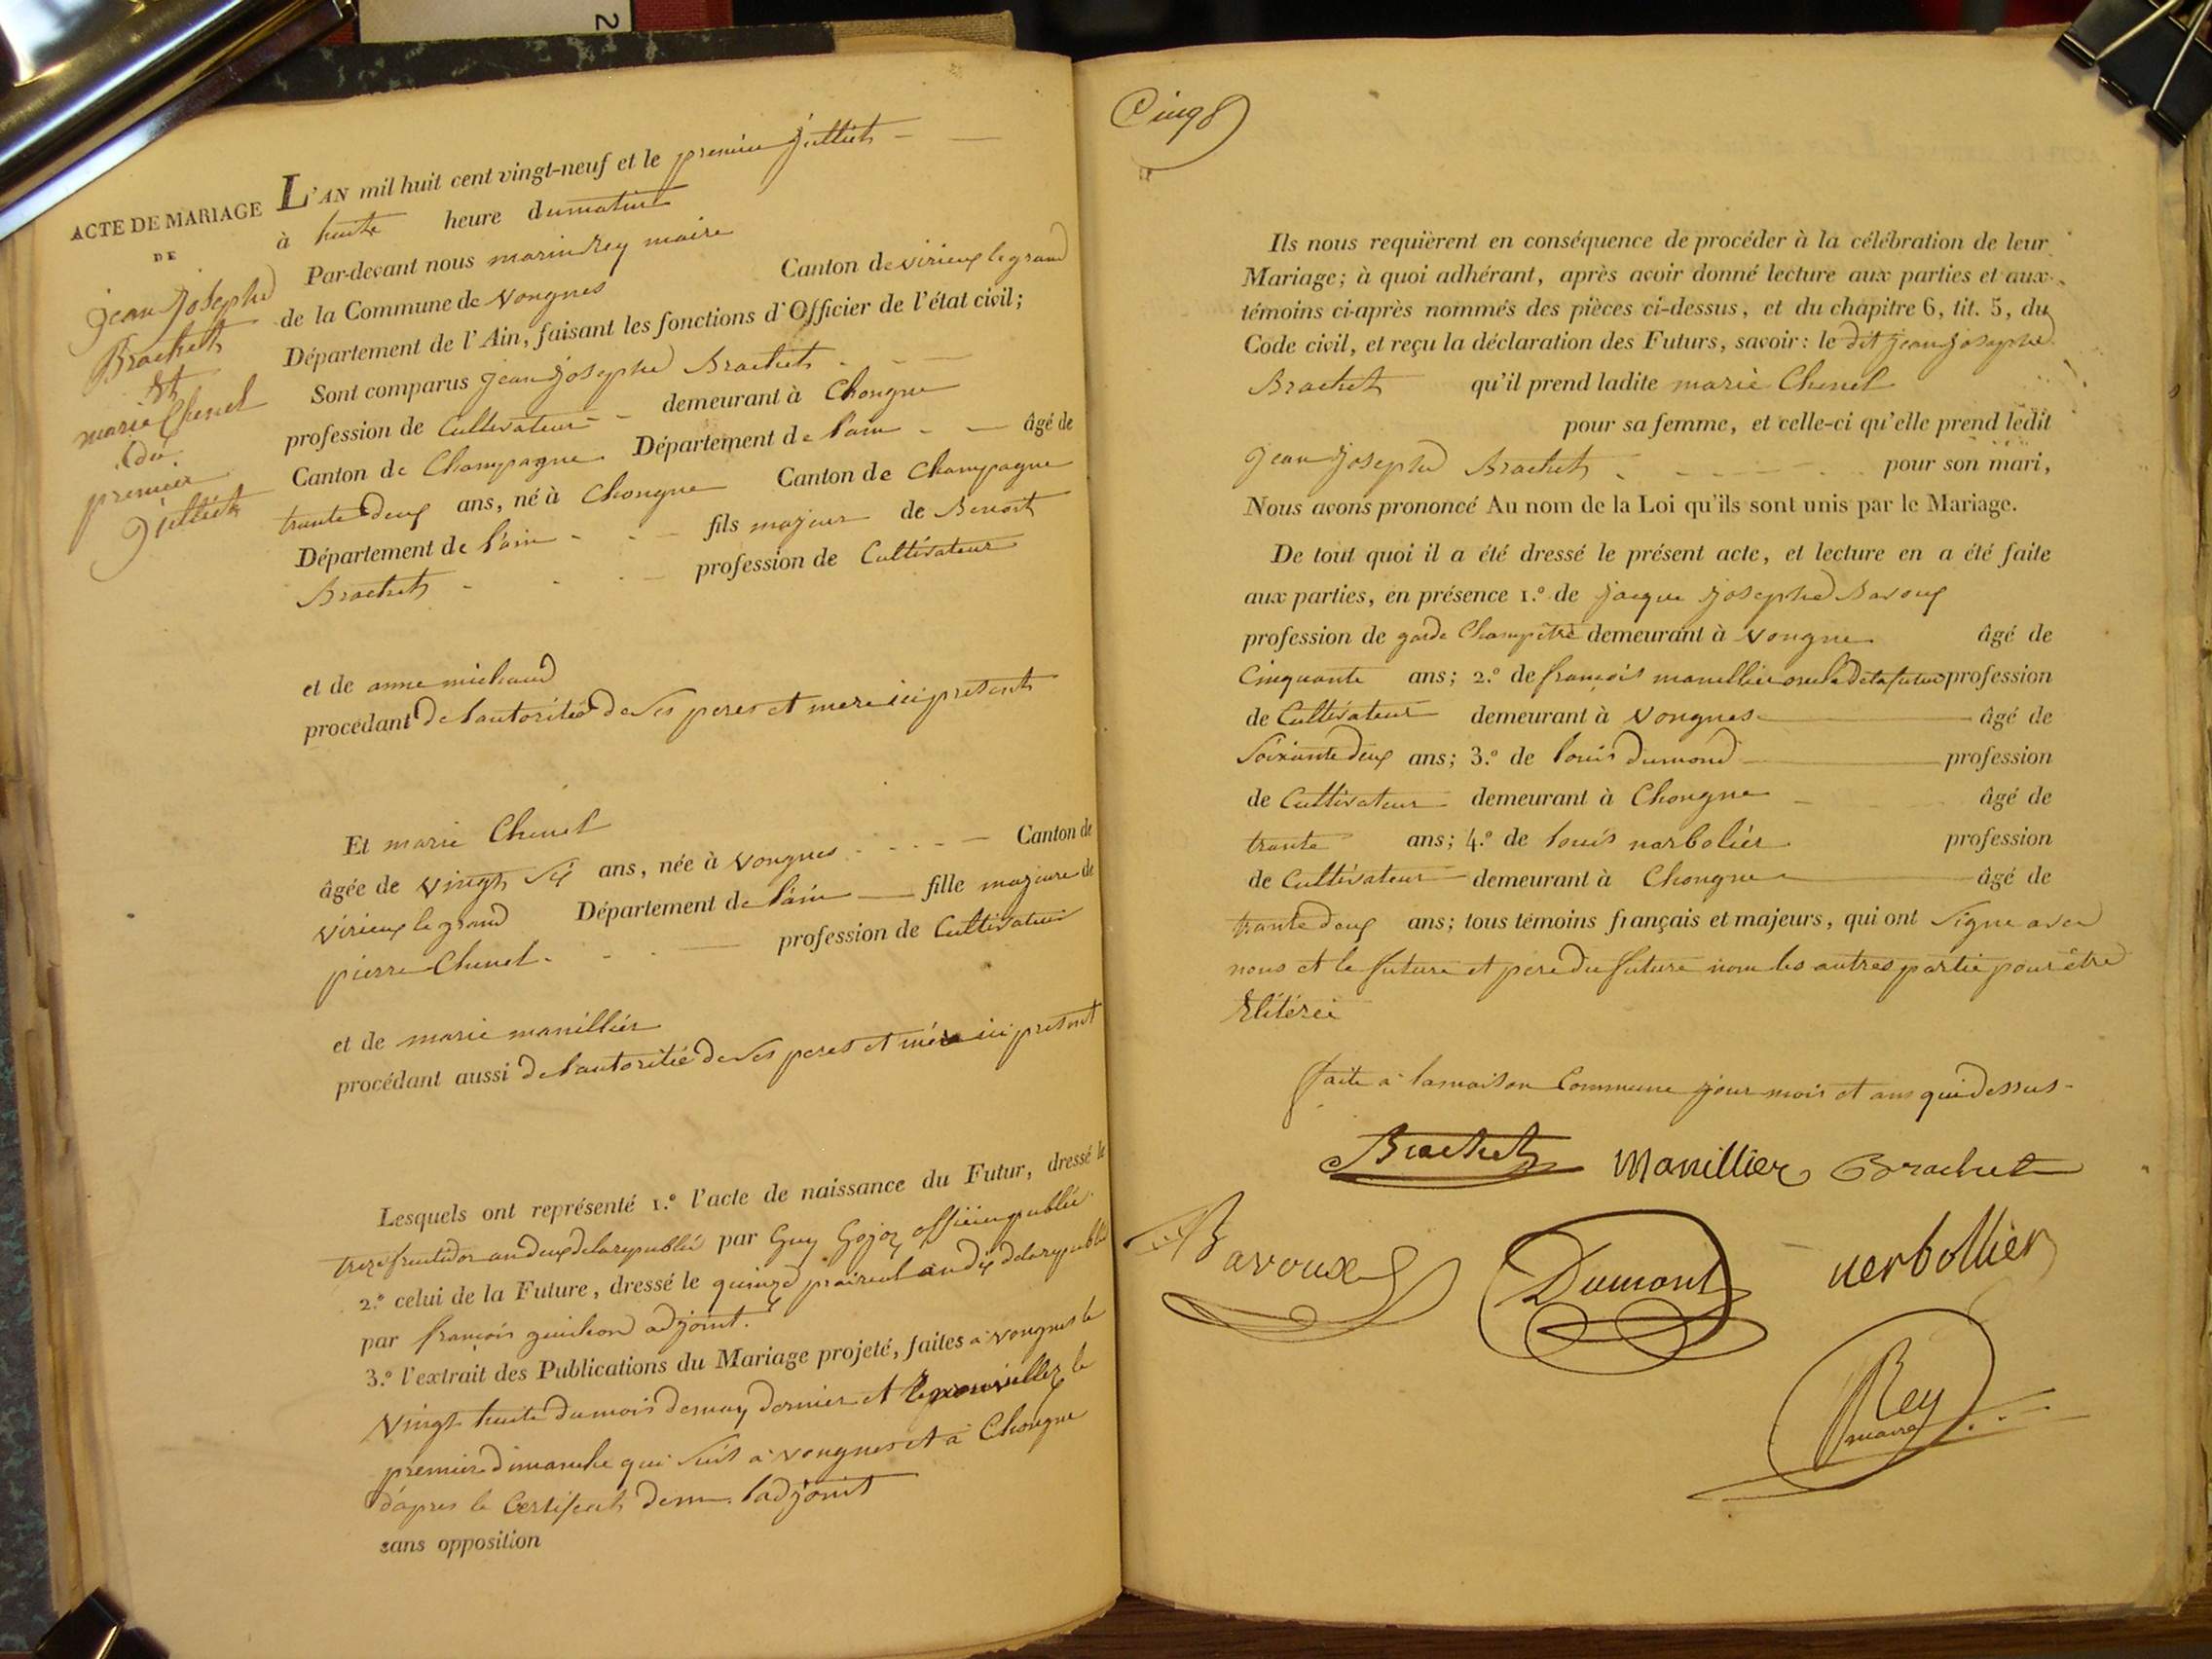 2
ACTE DE MARIAGE
DE
jean josephe
Brachet
Et
marie Chenel
du
premier
juilliet
L'AN mil huit cent vingt-neuf et le premier juilliet
à huite heure du matin
Par-devant nous marin Rey maire
de la Commune de Vongnes Canton de virieux le grand
Département de l'Ain, faisant les fonctions d'Officier de l'état civil;
Sont comparus jean josephe Brachet
profession de Cultivateur demeurant à Chongne
Canton de Champagne Département de l'ain âgé de
trante deux ans, né à Chongne Canton de Champagne
Département de l'ain fils majeur de Benoit
Brachet profession de Cultivateur
et de anne michaud
procédant de l'autoritée de ses peres et mere ici presents
Et marie Chenel
âgée de vingt six ans, née à Vongnes Canton de
virieux le grand Département de l'ain fille majeure de
pierre Chenel profession de Cultivateur
et de marie manillier
procédant aussi de l'autoritée de ses peres et mére ici present
Lesquels ont représenté 1.º l'acte de naissance du Futur, dressé le
treze fruitidor an deux de la republie par Guy Gojoz officier publié
2.º celui de la Future, dressé le quinze prairial an dix de la republie
par françois guichon adjoint.
3.º l'extrait des Publications du Mariage projeté, faites à vongnes le
vingt huite du mois de may dernier et le
premier dimanche qui suit a vongnes et à Chongne
d'apres le Certificat de m. l'adjoint
sans opposition
Cinq
Ils nous requièrent en conséquence de procéder à la célébration de leur
Mariage; à quoi adhérant, après avoir donné lecture aux parties et aux
témoins ci-après nommés des pièces ci-dessus, et du chapitre 6, tit. 5, du
Code civil, et reçu la déclaration des Futurs, savoir: le dit jean josephe
Brachet qu'il prend ladite marie Chenel
pour sa femme, et celle-ci qu'elle prend ledit
jean josephe Brachet pour son mari,
Nous avons prononcé Au nom de la Loi qu'ils sont unis par le Mariage.
De tout quoi il a été dressé le présent acte, et lecture en a été faite
aux parties, en présence 1.º de jacque josephe Bavoux
profession de garde Champêtre demeurant à vongne âgé de
Cinquante ans; 2.º de françois manillier oncle de la future profession
de Cultivateur demeurant à Vongnes âgé de
soixante deux ans; 3.º de louis dumond profession
de Cultivateur demeurant à Chongne âgé de
trante ans; 4.º de louis narbolier profession
de Cultivateur demeurant à Chongne âgé de
trante deux ans; tous témoins français et majeurs, qui ont signe avec
nous et le future et pere du future non les autres partie pour être
Elitérée
faite à la maison Commune jour mois et ans qui dessus
Brachet Manillier Brachet
Bavoux Dumont nerbollier
Rey
maire